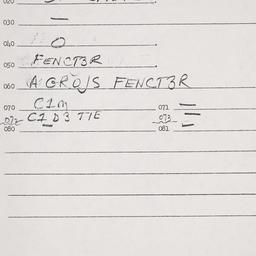 020
030 —
040 O
050 FENCT3R
060 AGROJS FENCT3R
070 C1m 071 —
072 C1D3 TTE 073 —
080 081 —